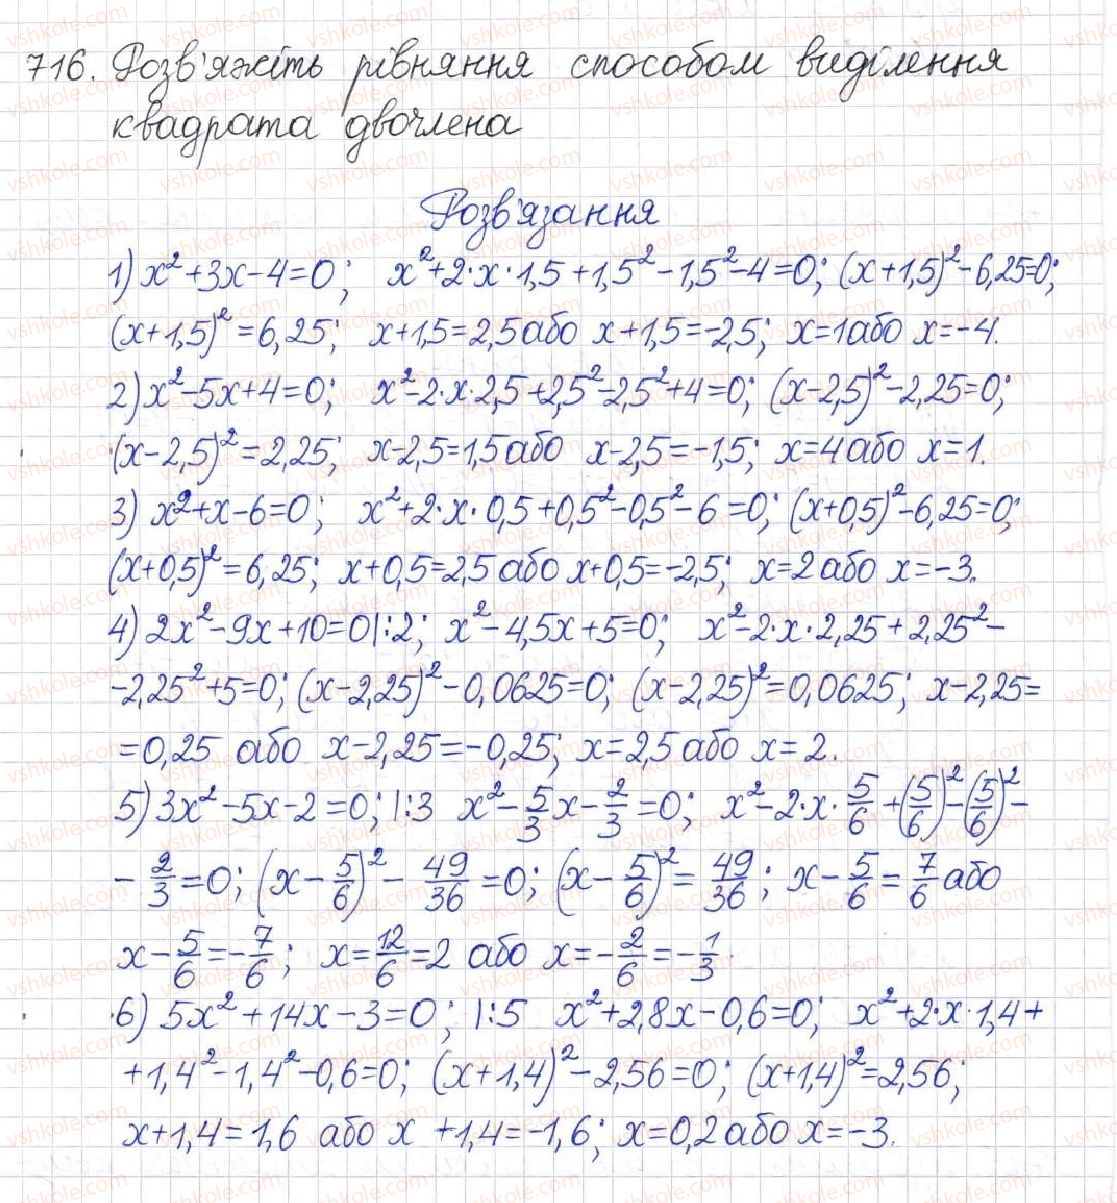 716. Розв'яжіть рівняння способом виділення
квадрата двочлена
Розв'язання
1) x²+3x-4=0; x²+2·x·1,5+1,5²-1,5²-4=0; (x+1,5)²-6,25=0;
(x+1,5)²=6,25; x+1,5=2,5 або x+1,5=-2,5; x=1 або x=-4.
2) x²-5x+4=0; x²-2·x·2,5+2,5²-2,5²+4=0; (x-2,5)²-2,25=0;
(x-2,5)²=2,25; x-2,5=1,5 або x-2,5=-1,5; x=4 або x=1.
3) x²+x-6=0; x²+2·x·0,5+0,5²-0,5²-6=0; (x+0,5)²-6,25=0;
(x+0,5)²=6,25; x+0,5=2,5 або x+0,5=-2,5; x=2 або x=-3.
4) 2x²-9x+10=0|:2; x²-4,5x+5=0; x²-2·x·2,25+2,25²-
-2,25²+5=0; (x-2,25)²-0,0625=0; (x-2,25)²=0,0625; x-2,25=
=0,25 або x-2,25=-0,25; x=2,5 або x=2.
5) 3x²-5x-2=0; |:3 x²-5/3x-2/3=0; x²-2·x·5/6+(5/6)²-(5/6)²-
-2/3=0; (x-5/6)²-49/36=0; (x-5/6)²=49/36; x-5/6=7/6 або
x-5/6=-7/6; x=12/6=2 або x=-2/6=-1/3.
6) 5x²+14x-3=0; |:5 x²+2,8x-0,6=0; x²+2·x·1,4+
+1,4²-1,4²-0,6=0; (x+1,4)²-2,56=0; (x+1,4)²=2,56;
x+1,4=1,6 або x+1,4=-1,6; x=0,2 або x=-3.